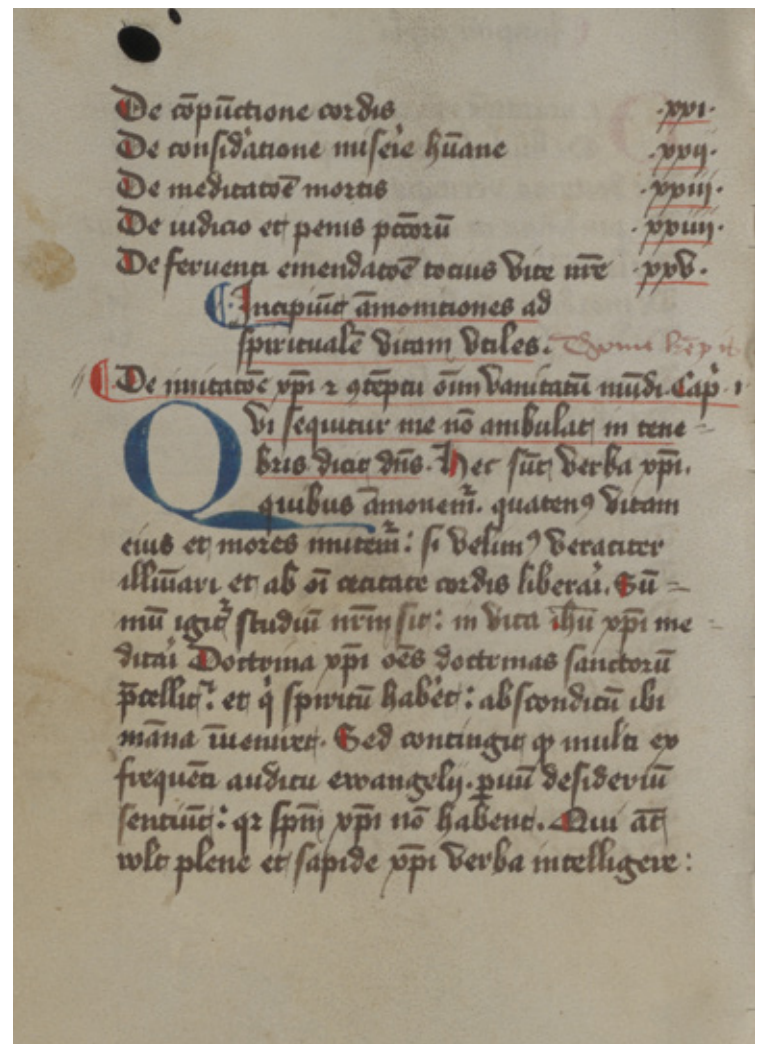 De co̅pu̅ctione cordis ·xxi·
De consid'atione mis'ie hu̅ane ·xxij·
De meditato̅e mortis ·xxiij·
De iudicio et penis pcc̅oru̅ ·xxiiij·
De feruenti emendato̅e tocius vite nr̅e ·xxv·
Incipiu̅t a̅monitiones ad
spirituale̅ vitam vtiles. Thome ke̅pis
De imitato̅e xp̅i ⁊ ꝯte̅ptu oi̅m vanitatu̅ mu̅di. Cap̅ · 1
Qvi sequitur me no̅ ambulat in tene
bris dicit dn̅s. Hec su̅t verba xp̅i.
quibus a̅monemr̅. quatenꝰ vitam
eius et mores imitemr̅: si velimꝰ veraciter
illu̅i̅ari et ab oi̅ cecitate cordis liberai̅. Su̅
mu̅ igitr̅ studiu̅ nr̅m sit: in vita ih̅u xp̅i me
ditai̅ Doctrina xp̅i oe̅s doctrinas sanctoru̅
p̅cellit: et q̇ spiritu̅ habe̅t: absconditu̅ ibi
ma̅na i̅ueniret. Sed contingit ꝙ multi ex
freque̅ti auditu ewangelij. ꝑuu̅ desideriu̅
sentiu̅t: qꝛ spm̅ xp̅i no̅ habent. Qui at̅
wlt plene et sapide xp̅i verba intelligere: